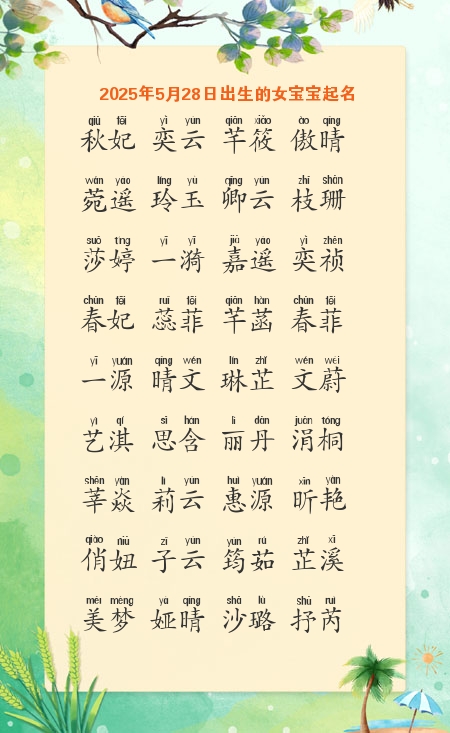 2025年5月28日出生的女宝宝起名
qiū fēi yì yún qiān xiǎo ào qíng
秋妃 奕云 芊筱 傲晴
wǎn yáo líng yù qīng yún zhī shān
菀遥 玲玉 卿云 枝珊
suō tíng yī yī jiā yáo yì zhēn
莎婷 一漪 嘉遥 奕祯
chūn fēi ruǐ fēi qiān hàn chūn fēi
春妃 蕊菲 芊菡 春菲
yī yuán qíng wén lín zhǐ wén wèi
一源 晴文 琳芷 文蔚
yì qí sī hán lì dān juān tóng
艺淇 思含 丽丹 涓桐
shēn yàn lì yún huì yuán xīn yàn
莘焱 莉云 惠源 昕艳
qiào niū zǐ yún yún rú zhǐ xī
俏妞 子云 筠茹 芷溪
měi mèng yà qíng shā lù shū ruì
美梦 娅晴 沙璐 抒芮